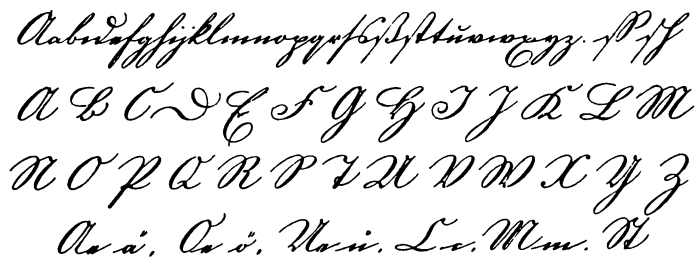 Aabcdefghijklmnopqrſsßſttuvwxyz. ſch
A B C D E F G H I J K L M
N O P Q R S T U V W X Y Z
Ae ä. Oe ö. Ue ü. C c. M m. St